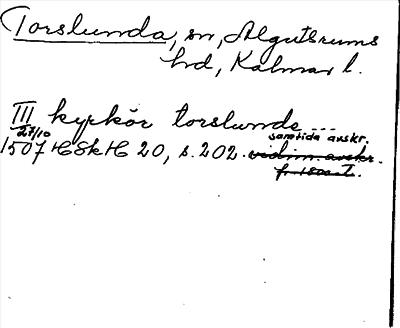 Torslunda, sn, Algutsrums
hd, Kalmar l.
III kyrkör torslunde...
27/10 samtida avskr.
1507 HSkH 20, s. 202. vidim. avskr.
fr. 1500-t.